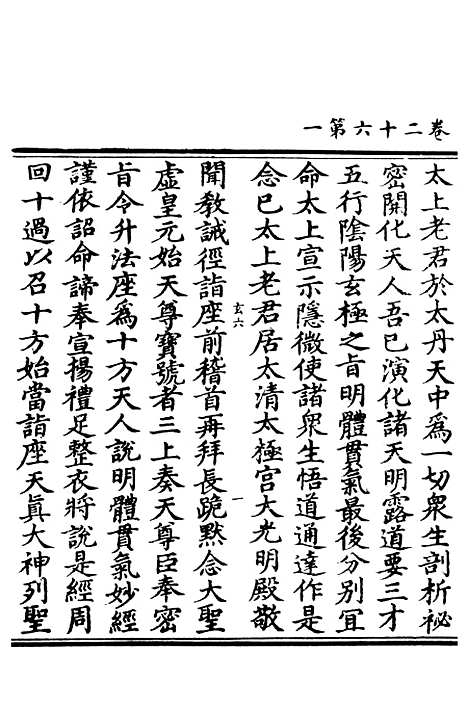 卷二十六第一
太上老君於太丹天中爲一切衆生剖析祕
密開化天人吾已演化諸天明露道要三才
五行陰陽玄極之旨明體貫氣最後分别冝
命太上宣示隱微使諸衆生悟道通達作是
念已太上老君居太清太極宫大光明殿敬
玄六
一
聞教誡徑詣座前稽首再拜長跪黙念大聖
虚皇元始天尊寶號者三上奏天尊臣奉密
旨今升法座爲十方天人說明體貫氣妙經
謹依詔命諦奉宣揚禮足整衣將說是經周
回十過以召十方始當詣座天眞大神列聖